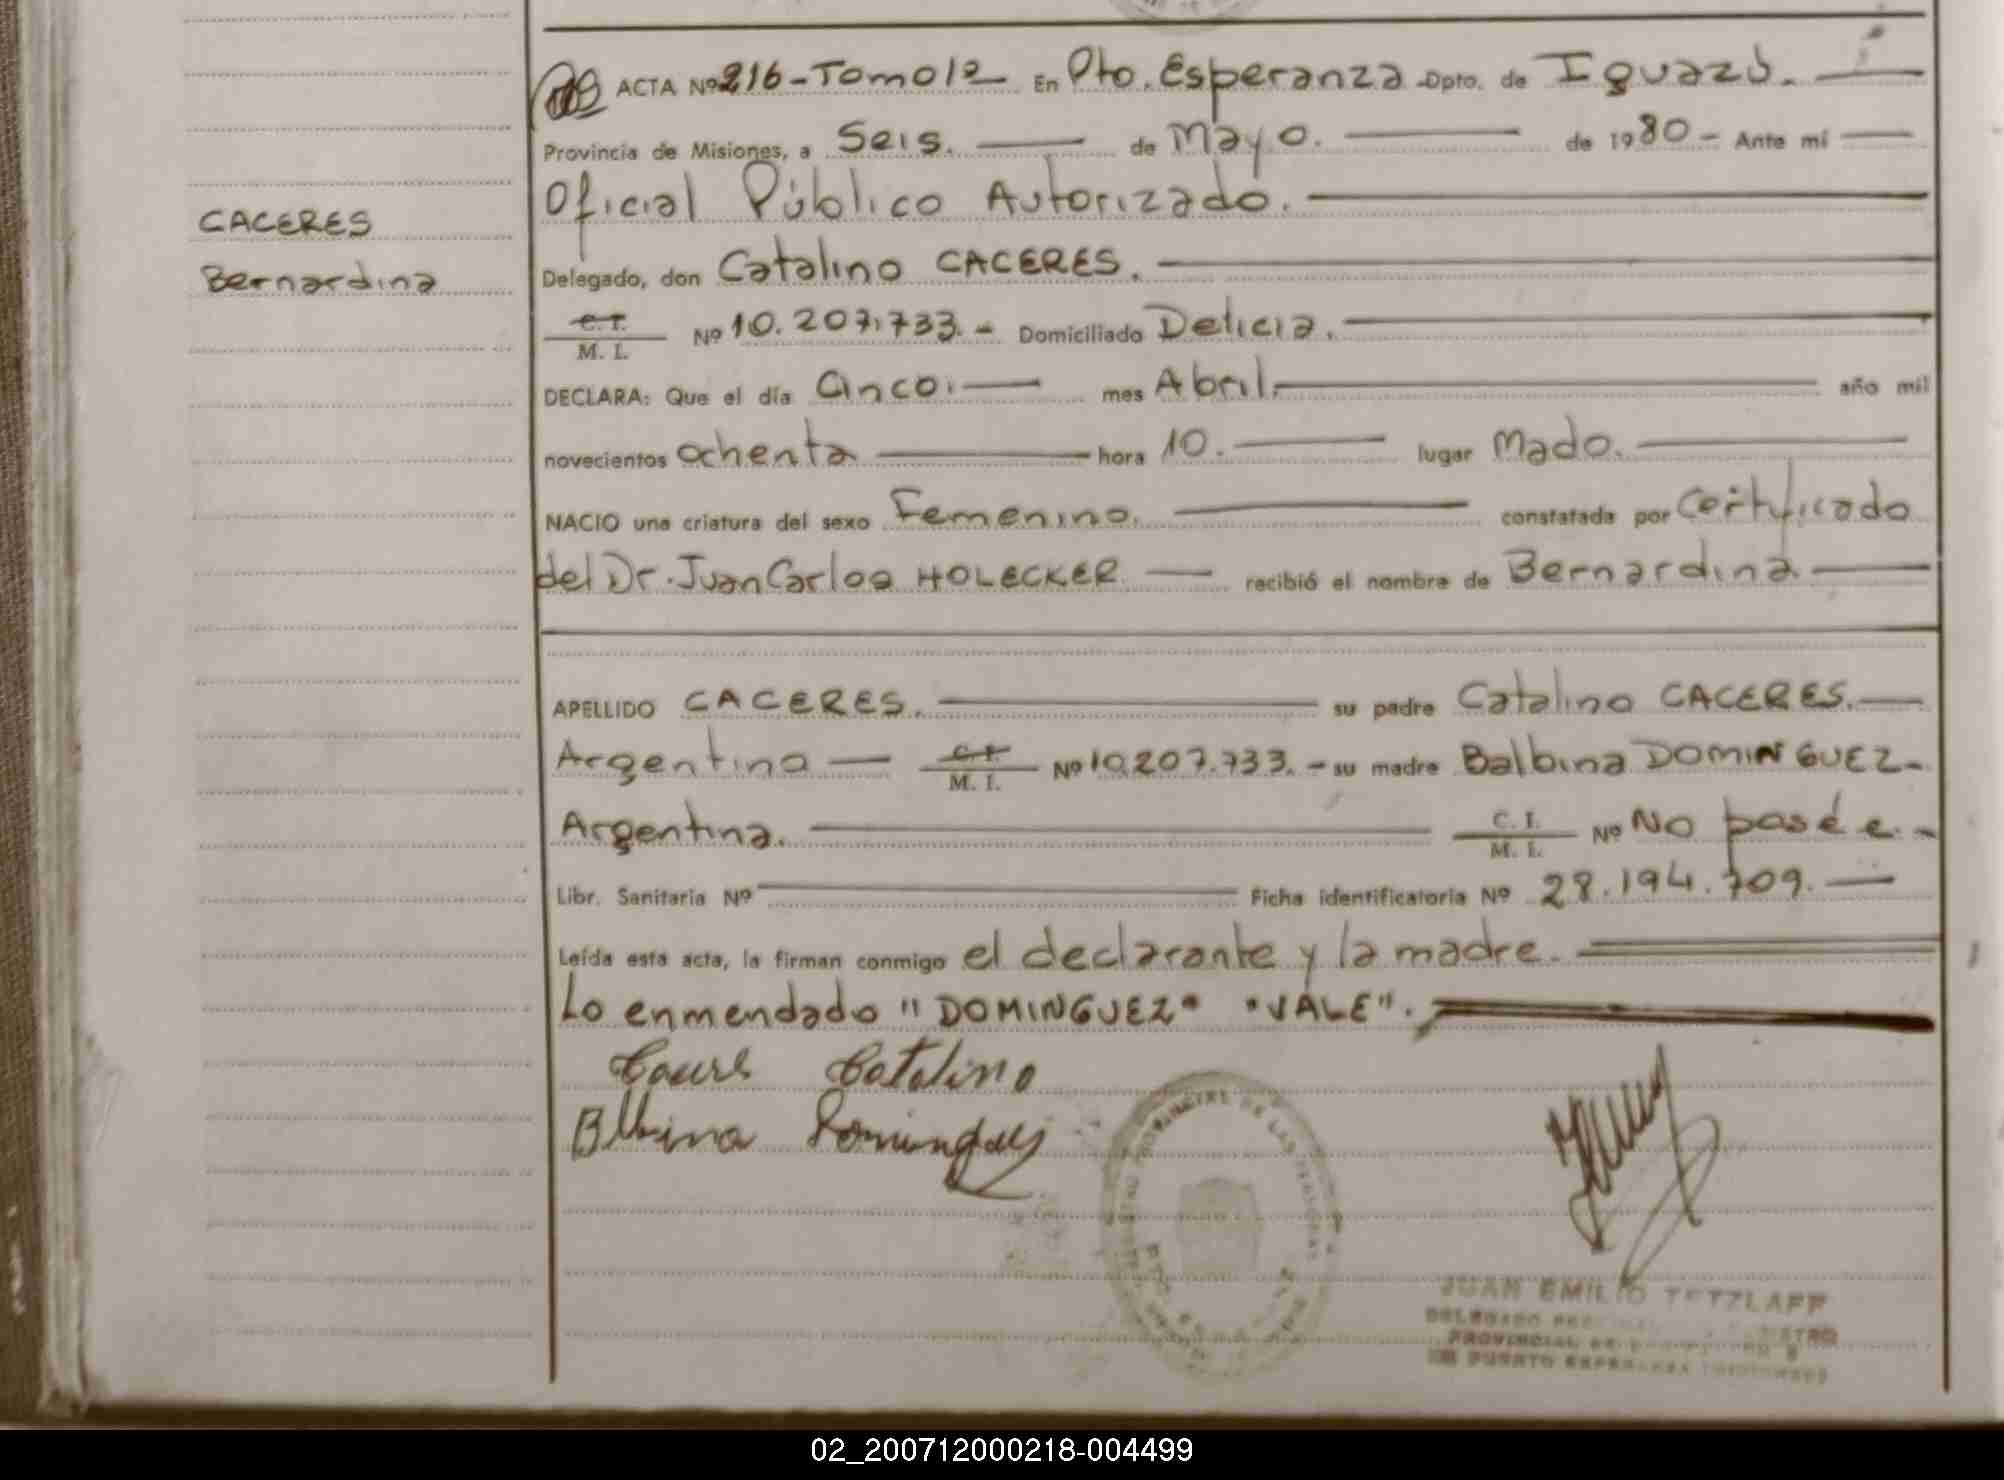 ACTA Nº 216-Tomo 12 En Pto. Esperanza Dpto. de Iguazú.
Provincia de Misiones, a Seis. de Mayo. de 1980- Ante mí
Oficial Público Autorizado.
CACERES
Bernardina
Delegado, don Catalino CACERES.
C.I.
M. I. Nº 10.207.733.- Domiciliado Delicia.
DECLARA: Que el día Cinco. mes Abril. año mil
novecientos ochenta hora 10. lugar Mado.
NACIO una criatura del sexo Femenino. constatada por Certificado
del Dr. Juan Carlos HOLECKER recibió el nombre de Bernardina.
APELLIDO CACERES. su padre Catalino CACERES.
Argentino C.I.
M. I. Nº 10.207.733.- su madre Balbina DOMINGUEZ-
Argentina. C. I.
M. I. Nº No poseé e.-
Libr. Sanitaria Nº Ficha identificatoria Nº 28.194.709.
Leída esta acta, la firman conmigo el declarante y la madre.
Lo enmendado "DOMINGUEZ" "VALE".
Catalino
Blbina Dominguez
JUAN EMILIO TETZLAFF
DELEGADO
PROVINCIAL DE
PUERTO ESPERANZA
02_200712000218-004499